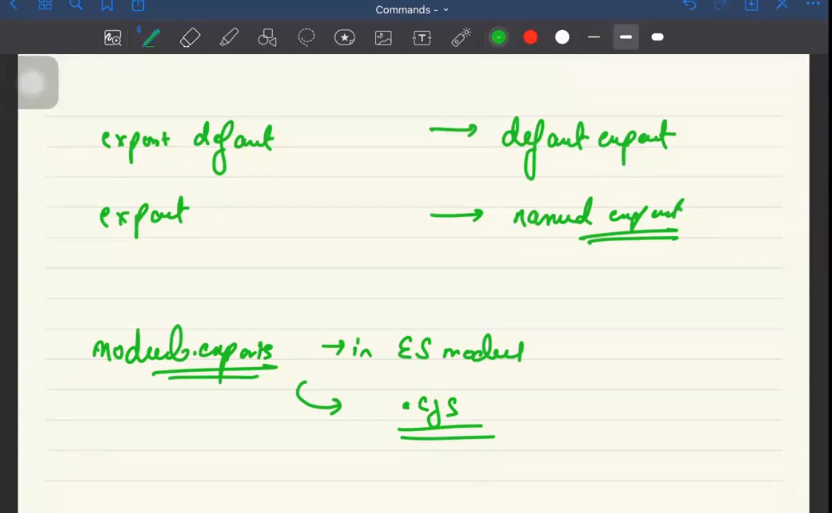 Commands -
export default → default export
export → named export
module.exports → in ES module
.cjs